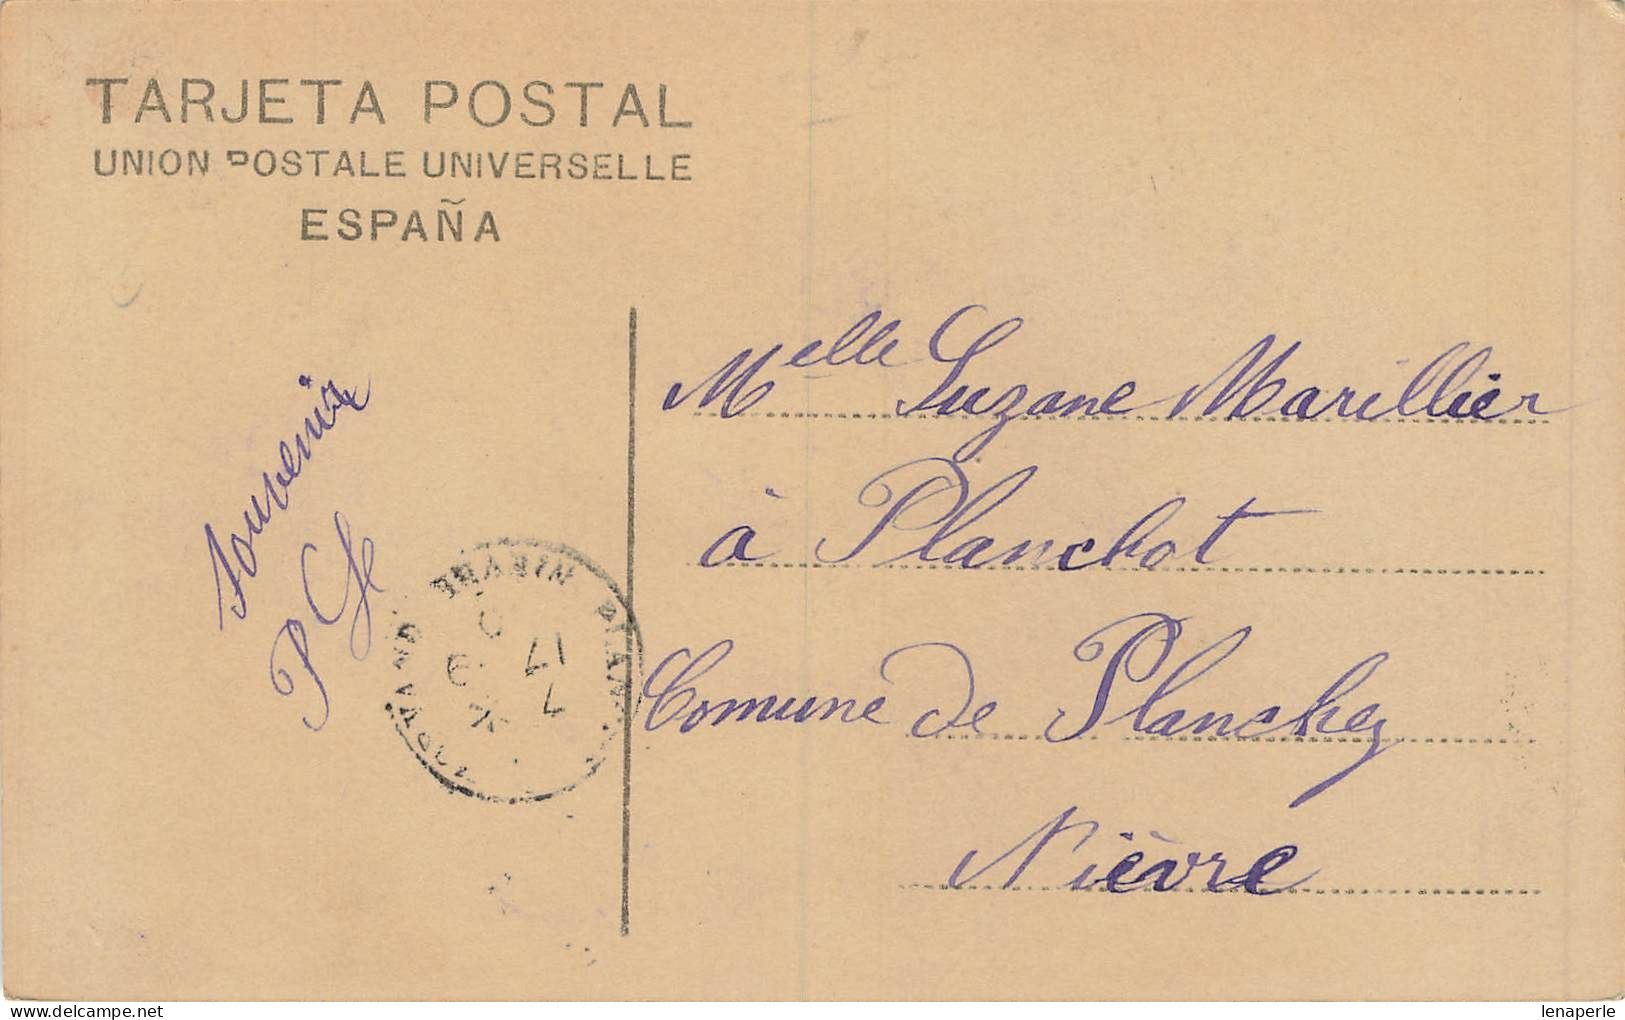 TARJETA POSTAL
UNION POSTALE UNIVERSELLE
ESPAÑA
Souvenir
Melle Suzane Marillier
à Planchot
Comune de Planchez
Nièvre
17
7
lenaperle